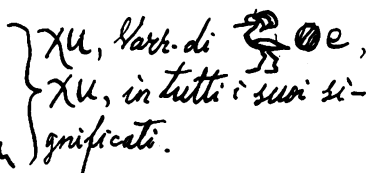 χu, Varr. di 𓅜𓐍e,
χu, in tutti i suoi si-
gnificati.